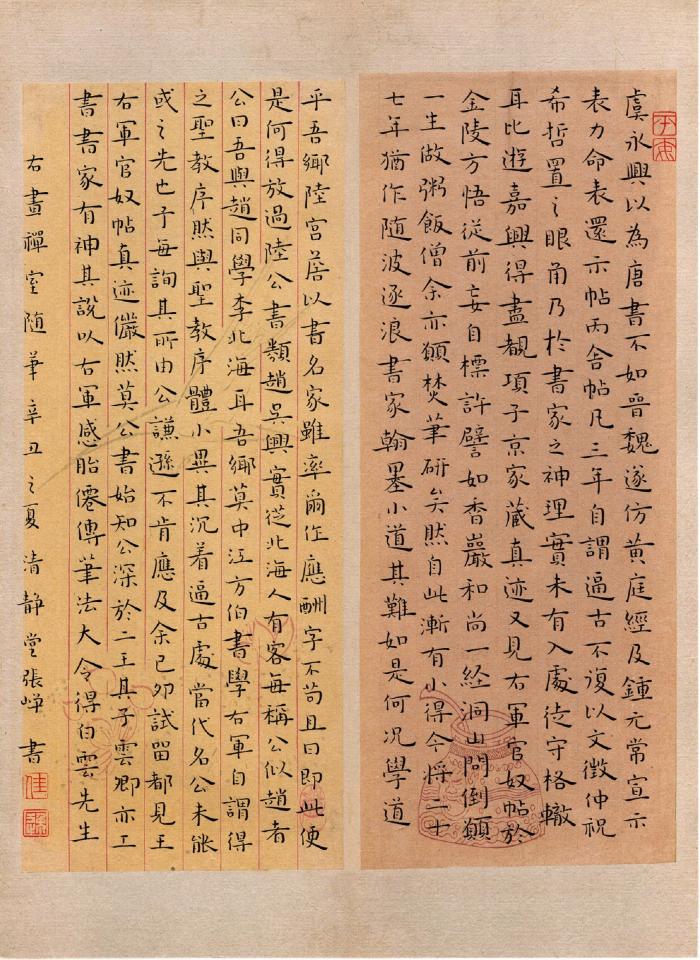 虞永興以為唐書不如晉魏遂仿黃庭經及鍾元常宣示
表力命表還示帖丙舍帖凡三年自謂逼古不復以文徵仲祝
希哲置之眼角乃於書家之神理實未有入處徒守格轍
耳比遊嘉興得盡覩項子京家藏真迹又見右軍官奴帖於
金陵方悟從前妄自標許譬如香巖和尚一經洞山問倒願
一生做粥飯僧余亦願焚筆研矣然自此漸有小得今將二十
七年猶作隨波逐浪書家翰墨小道其難如是何況學道
平吾鄉陸宮詹以書名家雖率爾作應酬字不苟且曰即此便
是何得放過陸公書類趙吳興實從北海人有客每稱公似趙者
公曰吾與趙同學李北海耳吾鄉莫中江方伯書學右軍自謂得
之聖教序然與聖教序體小異其沉着逼古處當代名公未能
或之先也予每詢其所由公謙遜不肯應及余己卯試留都見王
右軍官奴帖真迹儼然莫公書始知公深於二王其子雲卿亦工
書書家有神其說以右軍感胎僊傳筆法大令得白雲先生
右畫禪室隨筆辛丑之夏清靜堂張嶂書